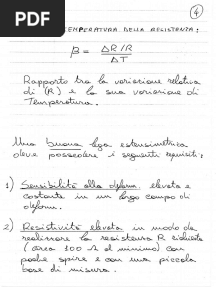 PDF
4
TEMPERATURA DELLA RESISTENZA:
β = ΔR/R
ΔT
Rapporto tra la variazione relativa
di (R) e la sua variazione di
Temperatura.
Una buona lega estensimetrica
deve possedere i seguenti requisiti:
1) Sensibilità alla deform. elevata e
costante in un largo campo di
deform.
2) Resistività elevata in modo da
realizzare la resistenza R richiesta
(circa 100 Ω al minimo) con
poche spire e con una piccola
base di misura.